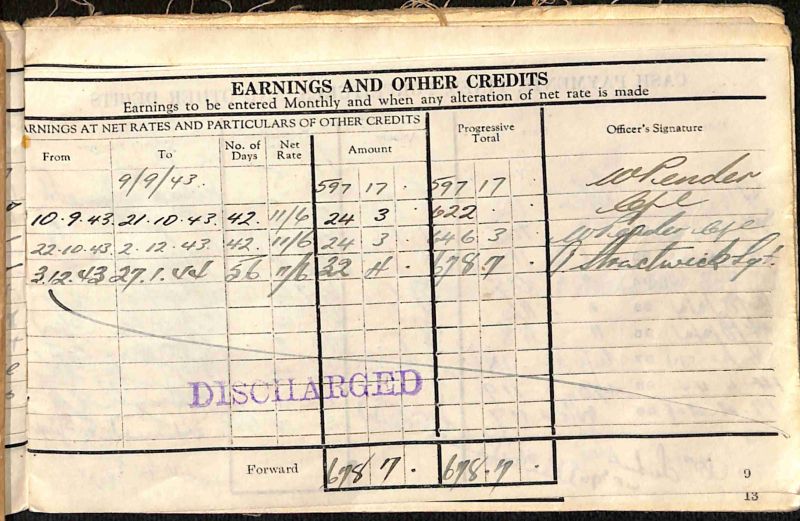 EARNINGS AND OTHER CREDITS
Earnings to be entered Monthly and when any alteration of net rate is made
ARNINGS AT NET RATES AND PARTICULARS OF OTHER CREDITS
From To No. of Days Net Rate Amount Progressive Total Officer's Signature
9/9/43. 597 17 . 597 17 . W Pender
10.9.43. 21.10.43. 42. 11/6 24 3 . 622 . .
22.10.43. 2.12.43. 42. 11/6 24 3 . 646 3 . W Pender
3.12.43 27.1.44 56 7/6 32 4 . 678.7 . Sgt.
DISCHARGED
Forward 678 7 . 678.7 .
9
13